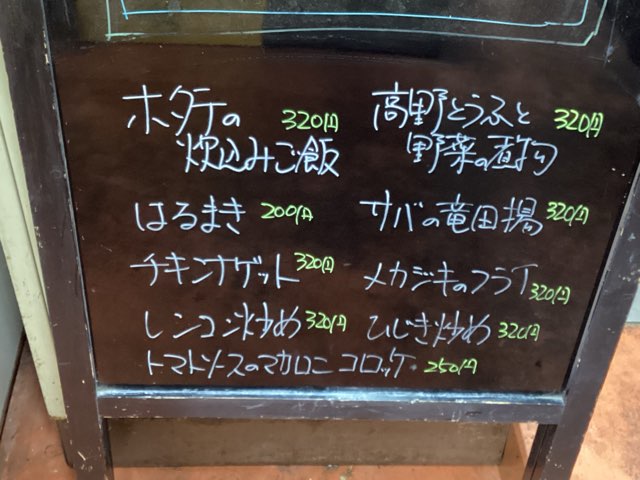 ホタテの 320円
炊込みご飯
高野とうふと 320円
野菜の煮物
はるまき 200円
サバの竜田揚 320円
チキンナゲット 320円
メカジキのフライ 320円
レンコン炒め 320円
ひじき炒め 320円
トマトソースのマカロニコロッケ 250円